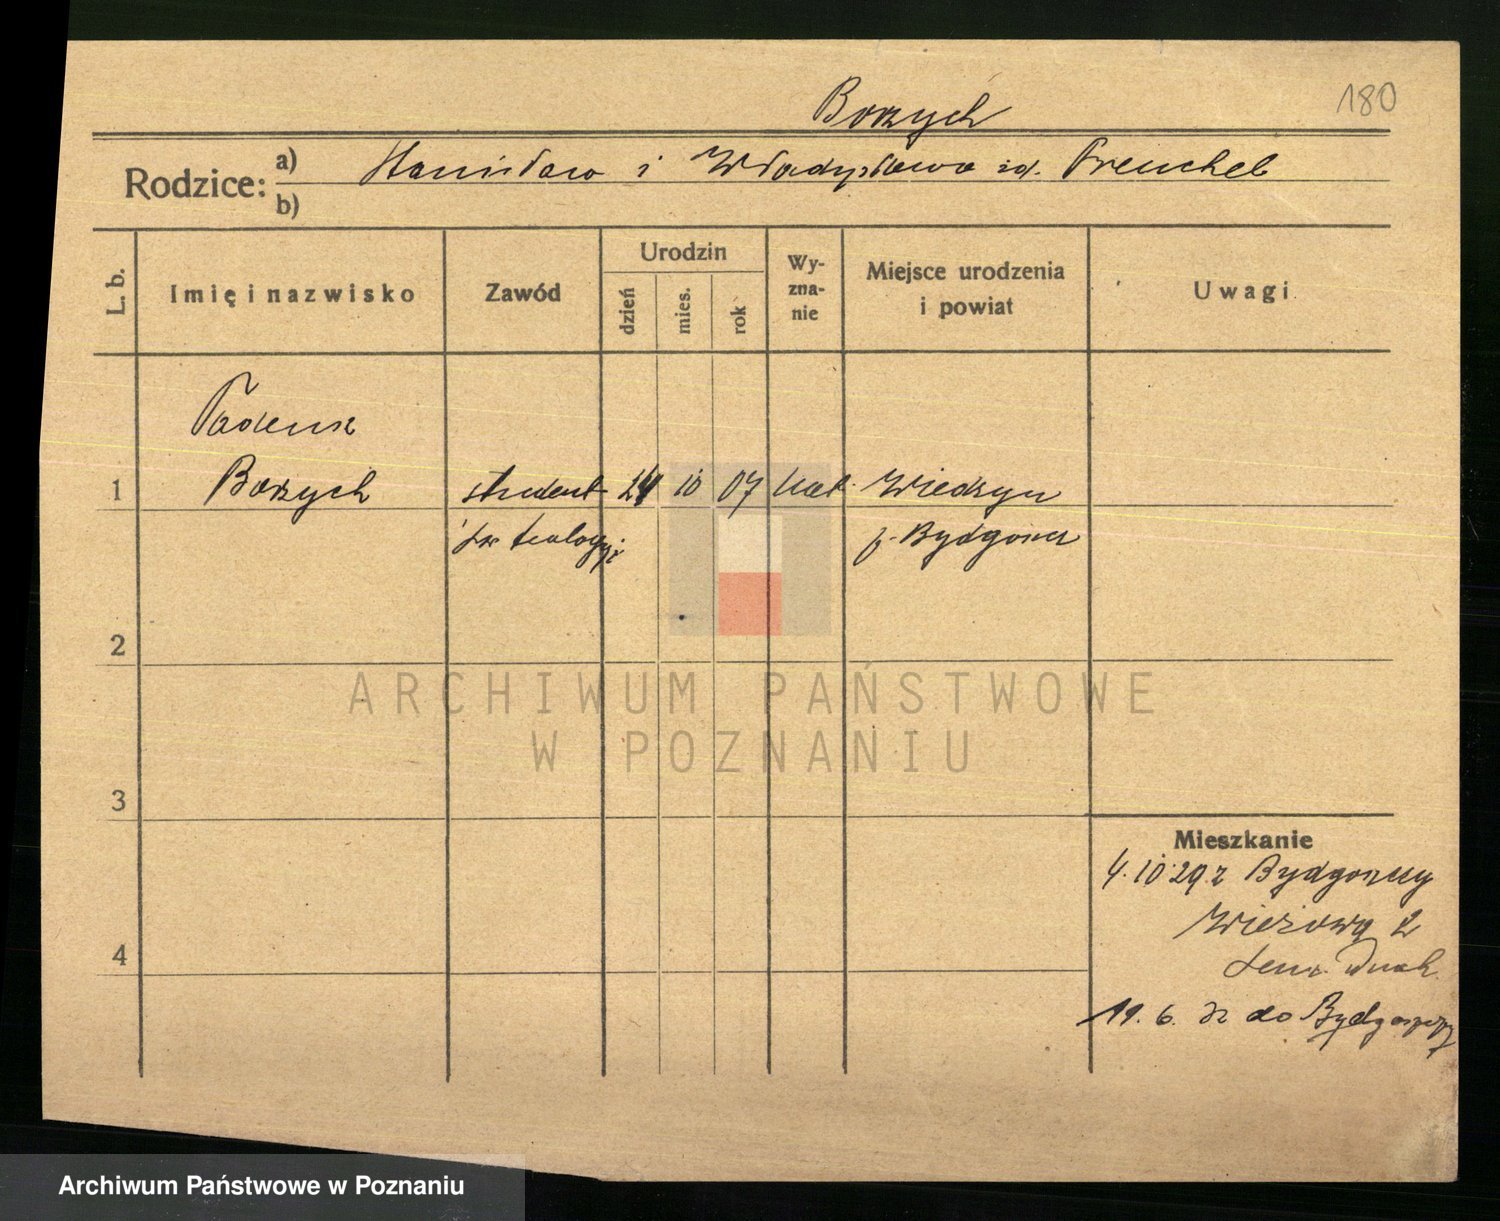 180
Borzych
Rodzice: a) Stanisław i Władysława zd. Frenchel
b)
L. b. Imię i nazwisko Zawód Urodzin Wy-zna-nie Miejsce urodzenia i powiat Uwagi
dzień mies. rok
Tadeusz
1 Borzych student 24 10 07 kat.
św teologji p. Bydgoszcz
2
ARCHIWUM PAŃSTWOWE
W POZNANIU
3
Mieszkanie
4.10.29 z Bydgoszczy
Wieżowa 2
4
19.6. do Bydgoszczy
Archiwum Państwowe w Poznaniu